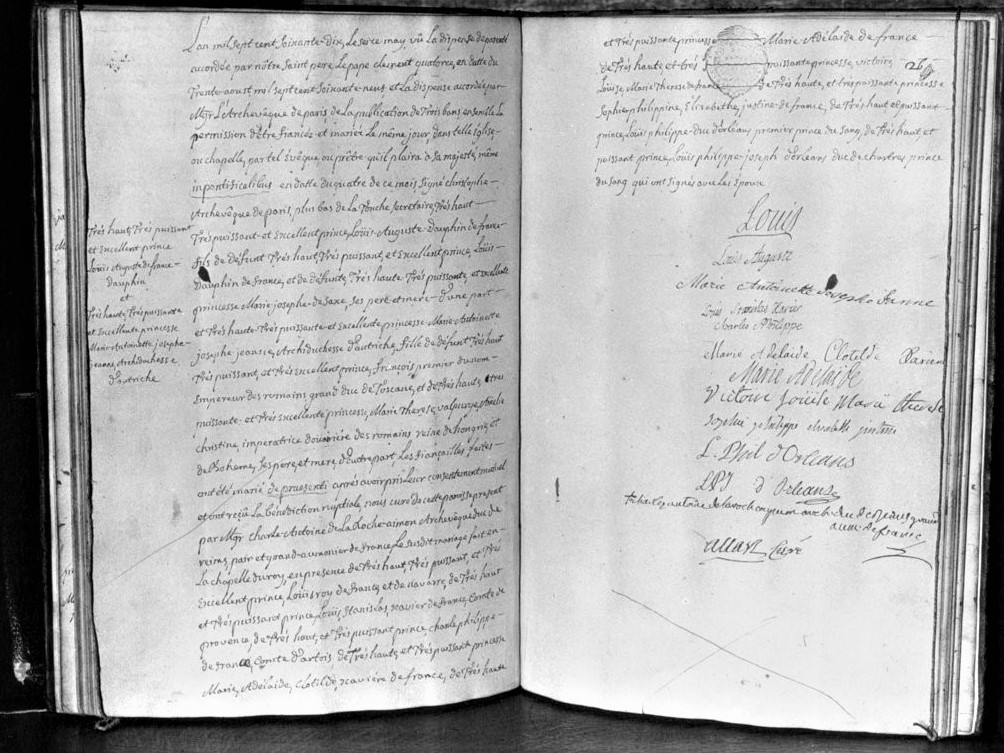 L'an mil sept cent soixante-dix, Le seize may, vû La dispense de parenté
accordée par nôtre saint pere Le pape clement quatorze, en datte du
Trente aoust mil sept cent soixante neuf et La dispense accordée par
Mgr L'Archevêque de paris de La publication de Trois bans, ensemble La
permission d'être fiancés et mariés Le même jour, dans telle Eglise
ou chapelle, par tel Evêque, ou prêtre qu'il plaira a sa majesté, même
in pontificalibus en datte du quatre de ce mois signé christophe
Archevêque de paris, plus bas de La Touche secretaire, Trés haut
Trés puissant et Excellent prince, Loüis-Auguste Dauphin de france
fils de défunt Trés haut, Trés puissant, et Excellent prince, Loüis
Dauphin de France, et de défunte, Trés haute Trés puissante, et excellente
princesse Marie josephe de Saxe, ses pere et mere d'une part
et Trés haute Trés puissante et Excellente princesse Marie Antoinette
josephe jeanne, Archiduchesse d'autriche, fille de défunt Trés haut
Trés puissant, et Trés Excellent prince, françois premier du nom
Empereur des romains grand duc de Toscane, et de Trés haute, Trés
puissante et Trés Excellente princesse Marie Therese,
christine, imperatrice doüairiére des romains reine de hongrie, et
de Boheme, ses pere, et mere d'autre part Les fiançailles faites
ont été marié de praesenti après avoir pris Leur consentement mutuel
et ont reçû La bénédiction nuptiale, nous curé de cette paroisse present
par Mgr charle-Antoine de La Roche-aimon Archevêque duc de
reims, pair et grand-aumonier de France, Le susdit mariage fait en
La chapelle du roy, en presence de Trés haut, Trés puissant, et Trés
Excellent prince, Louis roy de France, et de navarre, de Trés haut
et Trés puissant prince, Loüis, stanislas, xavier de France, Comte de
provence, de Trés haut, et Trés puissant prince, charle philippe
de france, Comte d'artois de Trés haute, et Trés puissante princesse
Marie, Adélaide, Clotilde, xaviere de france, de Trés haute
Trés haut, Trés puissant
et Excellent prince
Loüis Auguste de france
dauphin
et
Trés haute, Trés puissante
et Excellente princesse
Marie-Antoinette josephe
jeanne, Archiduchesse
d'autriche
26
et Trés puissante princesse Marie Adélaide de france
de Trés haute et trés puissante princesse, victoire,
Loüise, Marie Therese de france de Trés haute, et trés puissante princesse
Sophie philippine, Elizabethe, justine de france, de Trés haut et puissant
prince, Loüis philippe duc d'orleans premier prince du sang, de Trés haut et
puissant prince, Loüis philippe joseph d'orleans duc de chartres prince
du sang qui ont signés avec les époux
Louis
Louis Auguste
Marie Antoinette Josepha Jeanne
Louis Stanislas Xavier
Charles Philippe
Marie Adelaide Clotilde Xaviere
Marie Adelaide
Victoire Louise Marie Therese
Sophie philippe elisabette justine
L. Phil d'Orleans
LPJ d'Orleans
+ charles antoine de la roche aymon arch. duc de reims grand
aum. de france
allart Curé